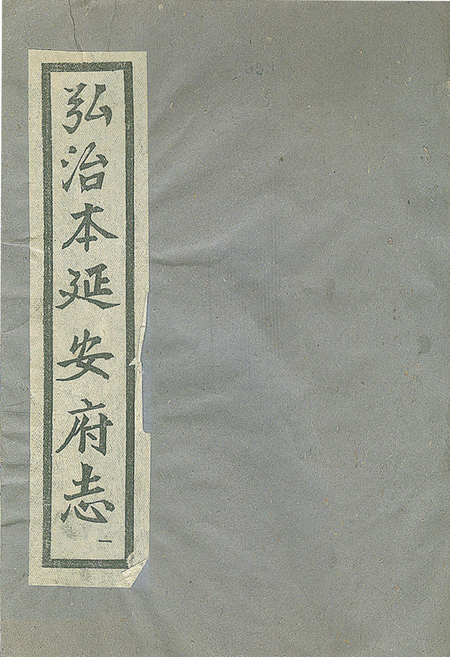 弘治本延安府志 一